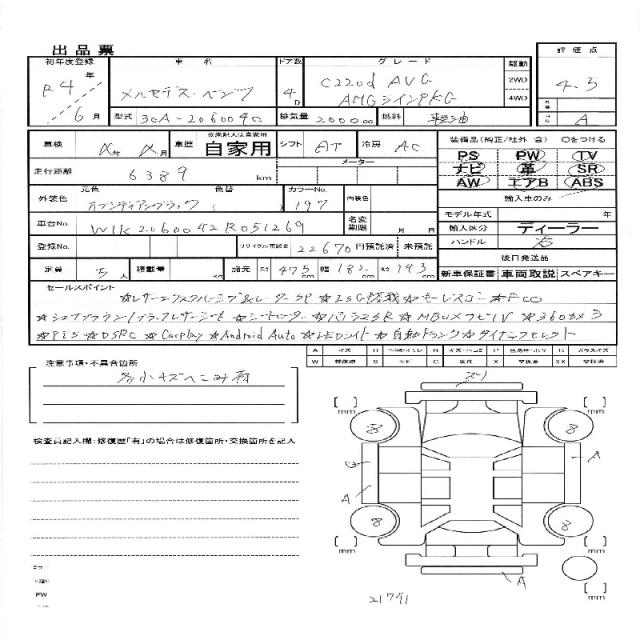 出品票
初年度登録 車名 ドア数 グレード 駆動 評価点
R4年 6月 メルセデス・ベンツ 4D C220d AVG 2WD 4WD 4.3
AMGラインPKG
型式 3CA-206004C 排気量 2000 cc 燃料 軽油 A
車検 年 月 車歴 自家用 シフト AT 冷房 AC
装備品(純正/社外 含) ○をつける
PS PW TV
ナビ 革 SR
AW エアB ABS
走行距離 6389 km メーター
輸入車のみ
外装色 元色 オブシディアンブラック 色替 カラーNo. 197 内装色
モデル年式 年
車台No. W1K2060042R051269 名変期限 月 日
輸入区分 ディーラー
ハンドル 右
登録No. リサイクル預託金 22670 円預託済 未預託
後日発送品
定員 5人 積載量 kg 諸元 長 475 cm 幅 182 cm 高 143 cm
新車保証書 車両取説 スペアキー
セールスポイント
★レザーエクスクルーシブ&レーダーSP ★ISG搭載 ★モーレスコン ★FCO
★シートヒーター ★パノラマSR ★MBUXナビTV ★360カメラ
★PTS ★DSRC ★Carplay ★Android Auto ★LEDライト ★自動トランク ★ダイナミックセレクト
注意事項・不具合箇所
各小キズヘコミ有
検査員記入欄:修復歴「有」の場合は修復箇所・交換箇所を記入
スリ
mm mm
8 8
G A
A
8 8
mm mm
A
mm
21741
PW